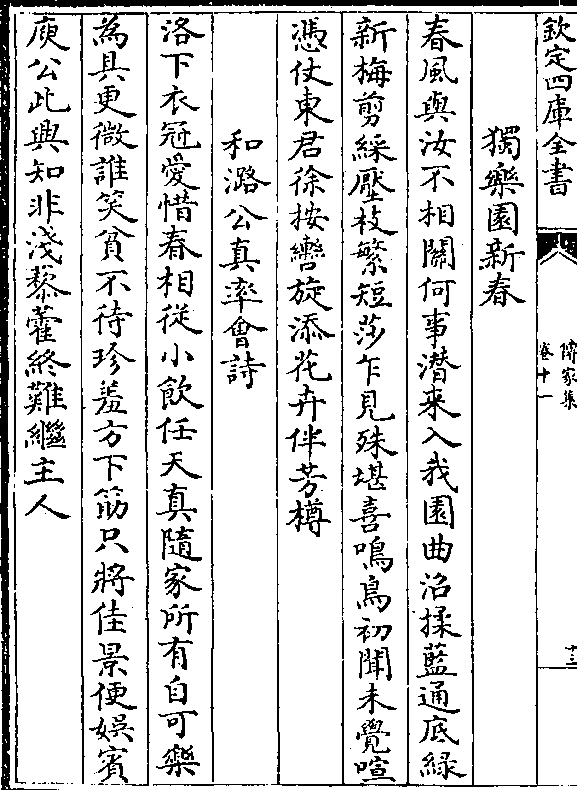 欽定四庫全書
傳家集
卷十一
十三
獨樂園新春
春風與汝不相關何事潜来入我園曲沼揉藍通底緑
新梅剪綵壓枝繁短莎乍見殊堪喜鳴鳥初聞未覺喧
憑仗東君徐按轡旋添花卉伴芳樽
和潞公真率㑹詩
洛下衣冠愛惜春相從小飲任天真隨家所有自可樂
為具更微誰笑貧不待珍羞方下筯只將佳景便娯賓
庾公此興知非淺藜藿終難繼主人